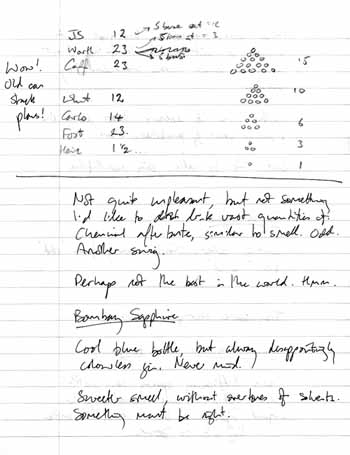 JS 12
Worth 23
Caff 23
15
Wow!
Old can
stack
plans!
12 10
Carlo 14 6
Foot 23
1 1/2 3
1
Not quite unpleasant, but not something
I'd like to drink vast quantities of.
Chemical aftertaste, similar to smell. Odd.
Another swig.
Perhaps not the best in the world. Hmm.
Bombay Sapphire
Cool blue bottle, but always disappointingly
colourless gin. Never mind.
Sweeter smell, without overtones of solvents.
Something must be right.